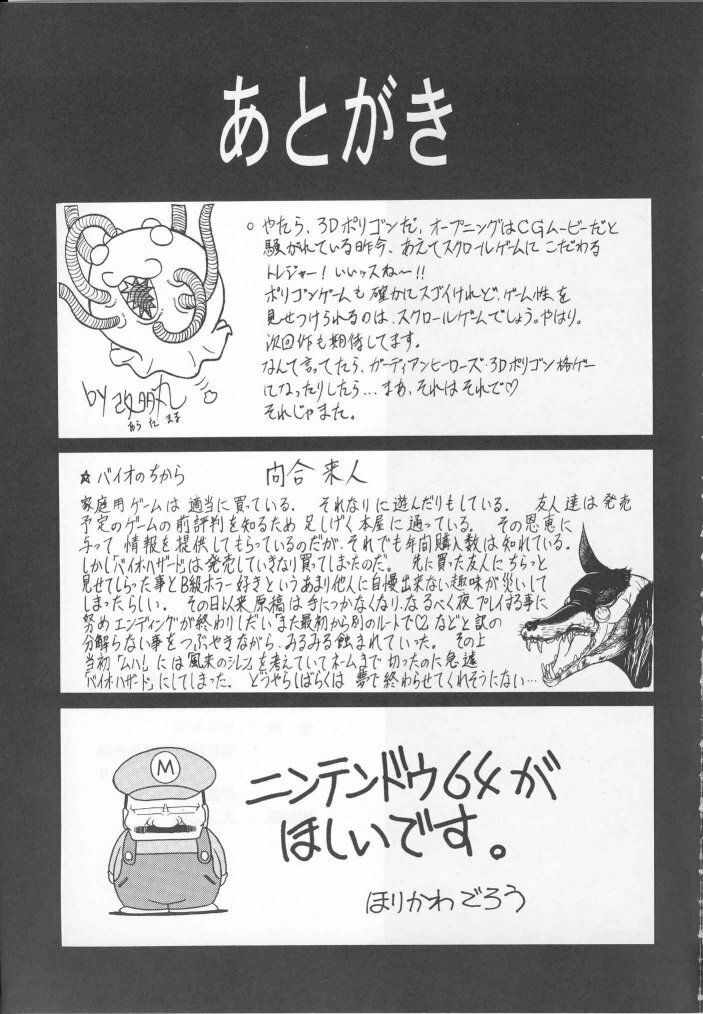 あとがき
○ やたら、3Dポリゴンだ、オープニングはCGムービーだと
騒がれている昨今、あえてスクロールゲームにこだわる
トレジャー!いいッスね〜!!
ポリゴンゲームも確かにスゴイけれど、ゲーム性を
見せつけられるのは、スクロールゲームでしょう。やはり。
次回作も期待してます。
なんて言ってたら、ガーディアンヒーローズ・3Dポリゴン格ゲー
になったりしたら…まあ、それはそれで♡
それじゃまた。
by
☆バイオのちから 向合来人
家庭用ゲームは適当に買っている。 それなりに遊んだりもしている。 友人達は発売
予定のゲームの前評判を知るため足しげく本屋に通っている。 その恩恵に
与って情報を提供してもらっているのだが、それでも年間購入数は知れている。
しかし「バイオハザード」は発売していきなり買ってしまったのだ。 先に買った友人にちらっと
見せてしらった事とB級ホラー好きというあまり他人に自慢出来ない趣味が災いして
しまったらしい。 その日以来原稿は手につかなくなり、なるべく夜プレイする事に
努めエンディングが終わりしだい「また最初から別のルートで〇2」などと訳の
分解らない事をつぶやきながら、みるみる蝕まれていった。 その上
当初「ムハ!」には「風来のシレン」を考えていてネームまで切ったのに急遽
「バイオハザード」にしてしまった。 どうやらしばらくは夢で終わらせてくれそうにない…
M
ニンテンドウ64が
ほしいです。
ほりかわごろう